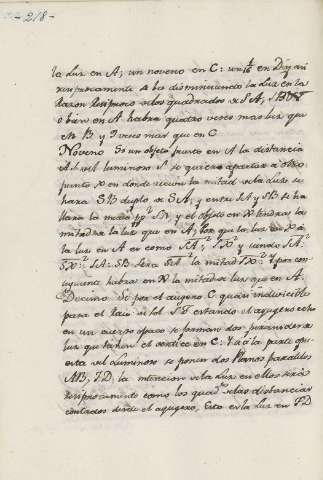 - 218 -
la Luz en A; un noveno en C: un 1/16 en D; y asi
susesivamente se ba disminuiendo la Luz en la
Razon Reciproca de los quadrados de SA, SB
o bien en A habra quatro veces mas luz que
en B y 9 veces mas que en C
Noveno Si un objeto puesto en A la distancia
del luminoso S se quiere apartar a otro
punto X en donde reciva la mitad de la Luz se
hara SB duplo de SA; y entre SA y SB se ha
llara la media pp.l SX, y el objeto en X tendra la
mitad de la luz que en A, por que la luz en X a
la luz en A es como SA² SX² y siendo SA²
SX²: SA: SB sera SA² la mitad SX² y por con
siguiente habra en X la mitad de luz que en A.
Decimo Si por el agugero C quasi indivicible
para el raio del S estando el agugero echo
en un cuerpo opaco se forman dos piramides de
luz que tienen el vertice en C: Y a la parte opu
esta del Luminoso se ponen dos Planos paralelos
AB, FD la intencion de la Luz en ellos sera
reciprocamente como los quad.s de las distancias
contadas desde el agugero, Esto es la Luz en FD